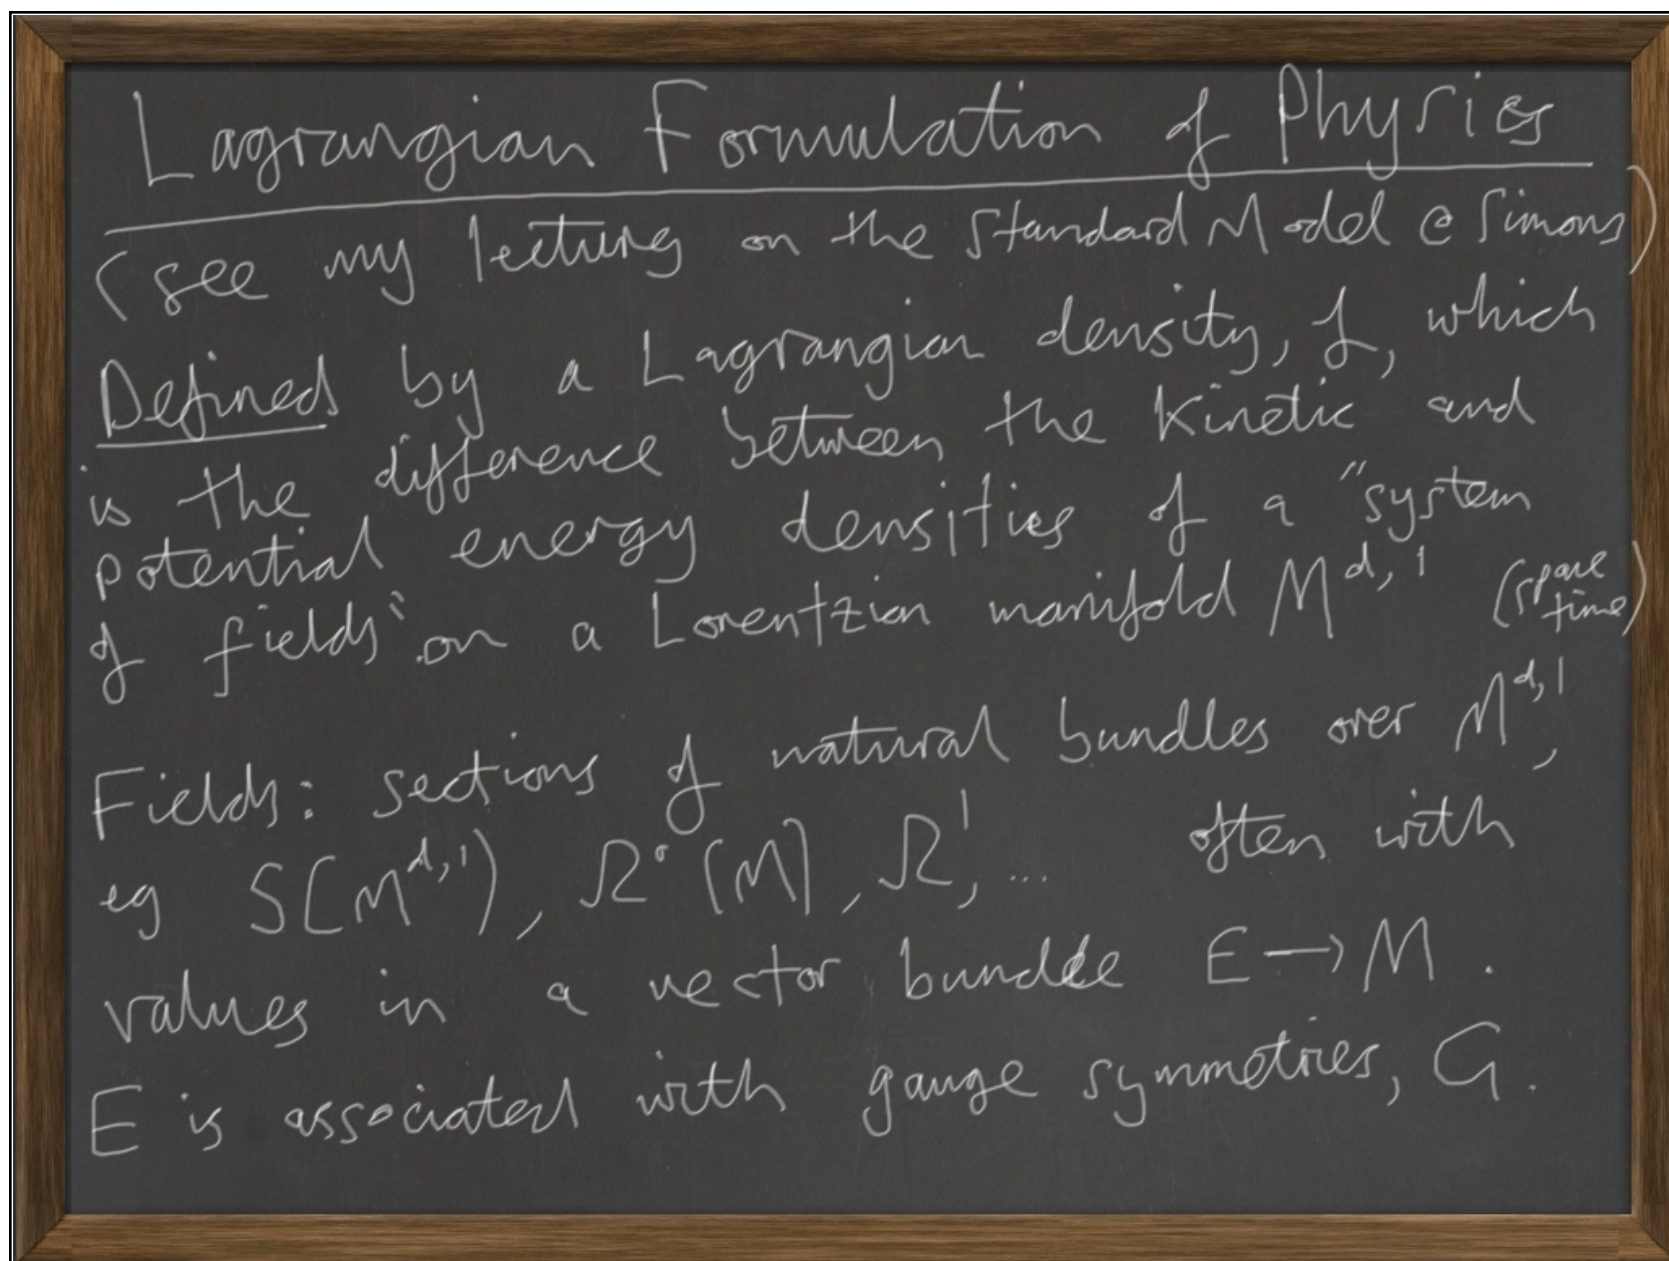 Lagrangian Formulation of Physics
(see my lectures on the Standard Model @ Simons)
Defined by a Lagrangian density, ℒ, which
is the difference between the kinetic and
potential energy densities of a "system
of fields" on a Lorentzian manifold M^{d,1} (space time)
Fields: sections of natural bundles over M^{d,1},
eg S(M^{d,1}), Ω^0(M), Ω^1, ... often with
values in a vector bundle E → M.
E is associated with gauge symmetries, G.